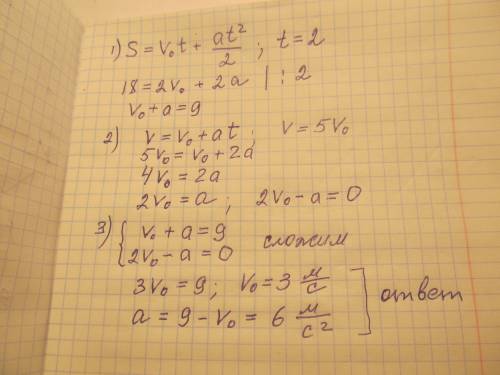 1) S = v₀t + at²/2 ; t = 2
18 = 2v₀ + 2a | : 2
v₀ + a = 9
2) v = v₀ + at ; v = 5v₀
5v₀ = v₀ + 2a
4v₀ = 2a
2v₀ = a ; 2v₀ - a = 0
3) { v₀ + a = 9
2v₀ - a = 0 сложим
3v₀ = 9 ; v₀ = 3 м/с
a = 9 - v₀ = 6 м/с² ] ответ